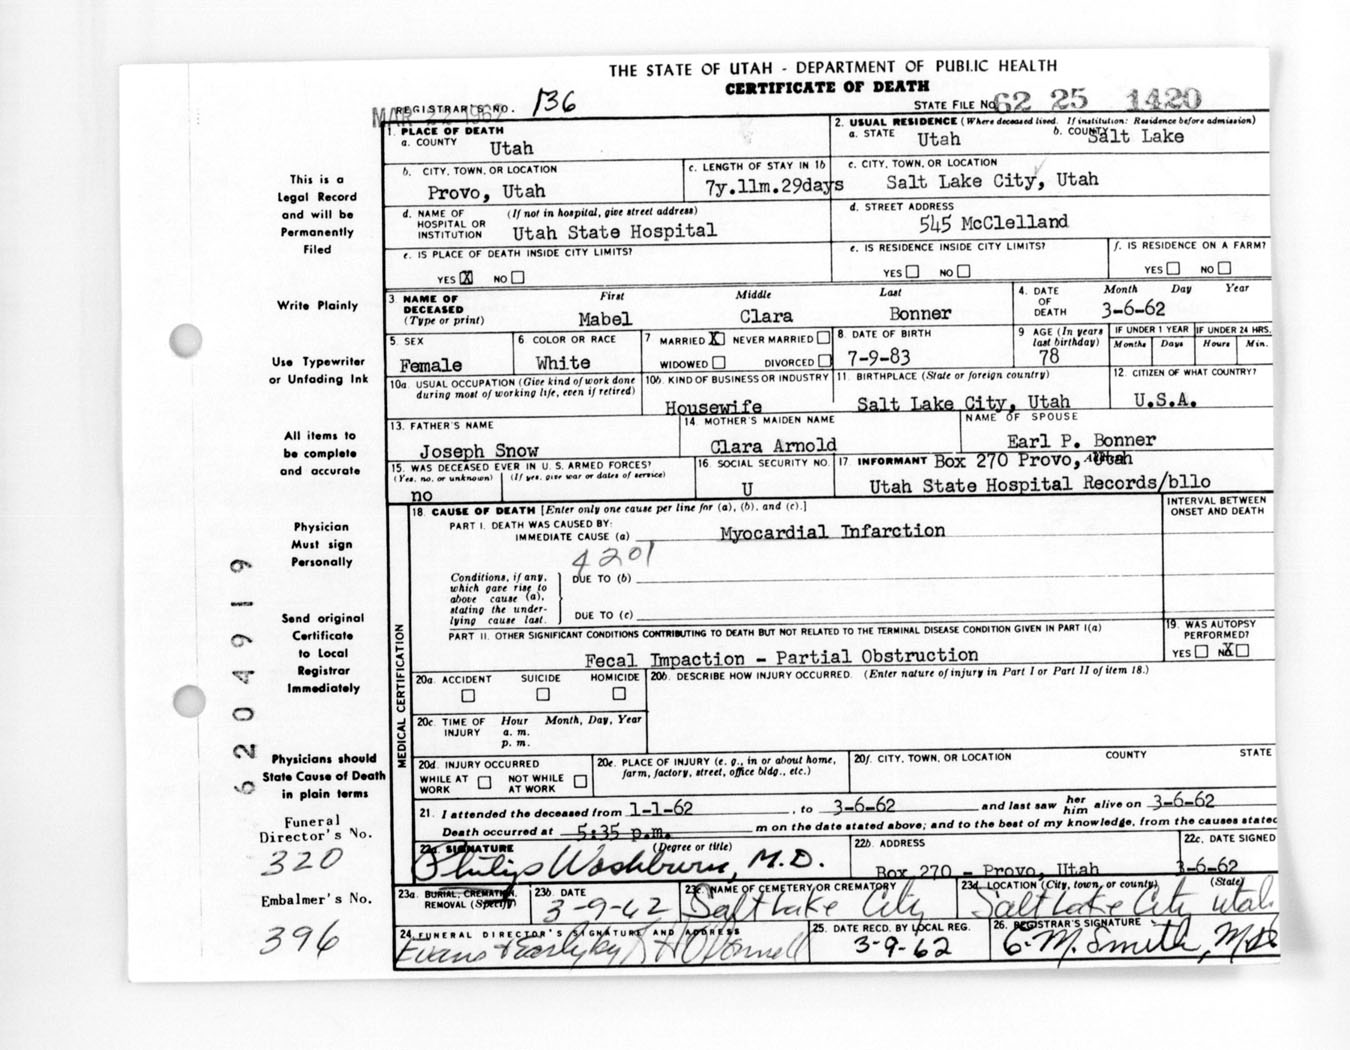 THE STATE OF UTAH - DEPARTMENT OF PUBLIC HEALTH
CERTIFICATE OF DEATH
REGISTRAR'S NO. 136
STATE FILE NO. 62 25 1420
MAR 22 1962
1. PLACE OF DEATH
a. COUNTY Utah
2. USUAL RESIDENCE (Where deceased lived. If institution: Residence before admission)
a. STATE Utah b. COUNTY Salt Lake
b. CITY, TOWN, OR LOCATION Provo, Utah
c. LENGTH OF STAY IN 1b 7y.11m.29days
c. CITY, TOWN, OR LOCATION Salt Lake City, Utah
d. NAME OF HOSPITAL OR INSTITUTION (If not in hospital, give street address) Utah State Hospital
d. STREET ADDRESS 545 McClelland
e. IS PLACE OF DEATH INSIDE CITY LIMITS?
YES X NO
e. IS RESIDENCE INSIDE CITY LIMITS?
YES NO
f. IS RESIDENCE ON A FARM?
YES NO
3 NAME OF DECEASED (Type or print)
First Middle Last
Mabel Clara Bonner
4. DATE OF DEATH
Month Day Year
3-6-62
5. SEX Female
6 COLOR OR RACE White
7 MARRIED X NEVER MARRIED
WIDOWED DIVORCED
8 DATE OF BIRTH 7-9-83
9 AGE (In years last birthday) 78
IF UNDER 1 YEAR Months Days
IF UNDER 24 HRS. Hours Min.
10a. USUAL OCCUPATION (Give kind of work done during most of working life, even if retired)
10b. KIND OF BUSINESS OR INDUSTRY
Housewife
11. BIRTHPLACE (State or foreign country)
Salt Lake City, Utah
12. CITIZEN OF WHAT COUNTRY?
U.S.A.
13. FATHER'S NAME
Joseph Snow
14. MOTHER'S MAIDEN NAME
Clara Arnold
NAME OF SPOUSE
Earl P. Bonner
15. WAS DECEASED EVER IN U. S. ARMED FORCES?
(Yes, no, or unknown) (If yes, give war or dates of service)
no
16. SOCIAL SECURITY NO.
U
17. INFORMANT Box 270 Provo, Utah
Utah State Hospital Records/bllo
MEDICAL CERTIFICATION
18. CAUSE OF DEATH [Enter only one cause per line for (a), (b), and (c).]
INTERVAL BETWEEN ONSET AND DEATH
PART I. DEATH WAS CAUSED BY:
IMMEDIATE CAUSE (a) Myocardial Infarction
4201
Conditions, if any, which gave rise to above cause (a), stating the underlying cause last.
DUE TO (b)
DUE TO (c)
PART II. OTHER SIGNIFICANT CONDITIONS CONTRIBUTING TO DEATH BUT NOT RELATED TO THE TERMINAL DISEASE CONDITION GIVEN IN PART I(a)
Fecal Impaction - Partial Obstruction
19. WAS AUTOPSY PERFORMED?
YES NO X
20a. ACCIDENT SUICIDE HOMICIDE
20b. DESCRIBE HOW INJURY OCCURRED. (Enter nature of injury in Part I or Part II of item 18.)
20c. TIME OF INJURY Hour Month, Day, Year
a. m.
p. m.
20d. INJURY OCCURRED
WHILE AT WORK NOT WHILE AT WORK
20e. PLACE OF INJURY (e. g., in or about home, farm, factory, street, office bldg., etc.)
20f. CITY, TOWN, OR LOCATION COUNTY STATE
21. I attended the deceased from 1-1-62, to 3-6-62 and last saw her him alive on 3-6-62
Death occurred at 5:35 p.m. m on the date stated above; and to the best of my knowledge, from the causes stated
22a. SIGNATURE (Degree or title)
Philip Washburn, M.D.
22b. ADDRESS
Box 270 - Provo, Utah
22c. DATE SIGNED
3-6-62
23a. BURIAL, CREMATION, REMOVAL (Specify)
23b. DATE
3-9-62
23c. NAME OF CEMETERY OR CREMATORY
Salt Lake City
23d. LOCATION (City, town, or county) (State)
Salt Lake City Utah
24. FUNERAL DIRECTOR'S SIGNATURE AND ADDRESS
25. DATE RECD. BY LOCAL REG.
3-9-62
26. REGISTRAR'S SIGNATURE
G. M. Smith, MD
This is a
Legal Record
and will be
Permanently
Filed
Write Plainly
Use Typewriter
or Unfading Ink
All items to
be complete
and accurate
Physician
Must sign
Personally
Send original
Certificate
to Local
Registrar
Immediately
Physicians should
State Cause of Death
in plain terms
Funeral
Director's No.
320
Embalmer's No.
396
62049 19